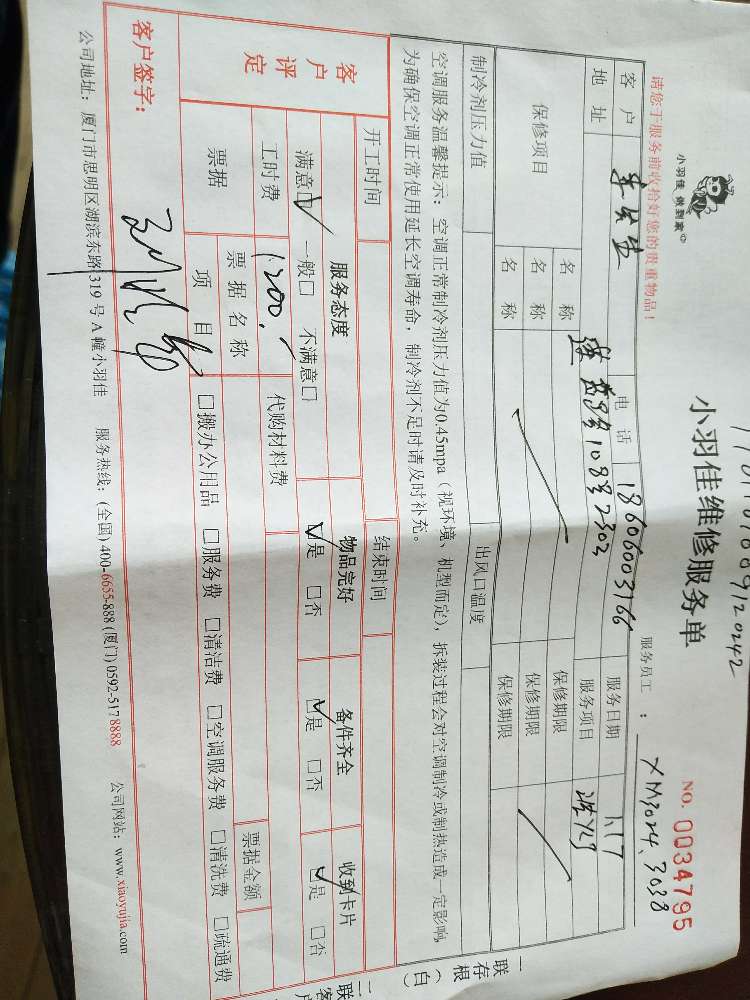 小羽佳 做到家
小羽佳维修服务单
NO. 0034795
请您于服务前收拾好您的贵重物品!
服务员工: XM3024、3038
客户 电话 18606003166 服务日期 1.17
地址 108号2302 服务项目
保修项目 名称 保修期限
名称 保修期限
名称 保修期限
制冷剂压力值 出风口温度
空调服务温馨提示: 空调正常制冷剂压力值为0.45mpa (视环境、机型而定), 拆装过程会对空调制冷或制热造成一定影响,
为确保空调正常使用延长空调寿命, 制冷剂不足时请及时补充。
开工时间 结束时间
客户评定
服务态度 物品完好 备件齐全 收到卡片
满意□ 一般□ 不满意□ □是 □否 □是 □否 □是 □否
工时费 1200. 代购材料费
票据 票据名称 票据金额
项目 □搬办公用品 □服务费 □清洁费 □空调服务费 □清洗费 □疏通费
客户签字:
公司地址: 厦门市思明区湖滨东路319号A幢小羽佳 服务热线: (全国) 400-6655-888 (厦门) 0592-5178888 公司网站: www.xiaoyujia.com
一联存根(白)
二联客户